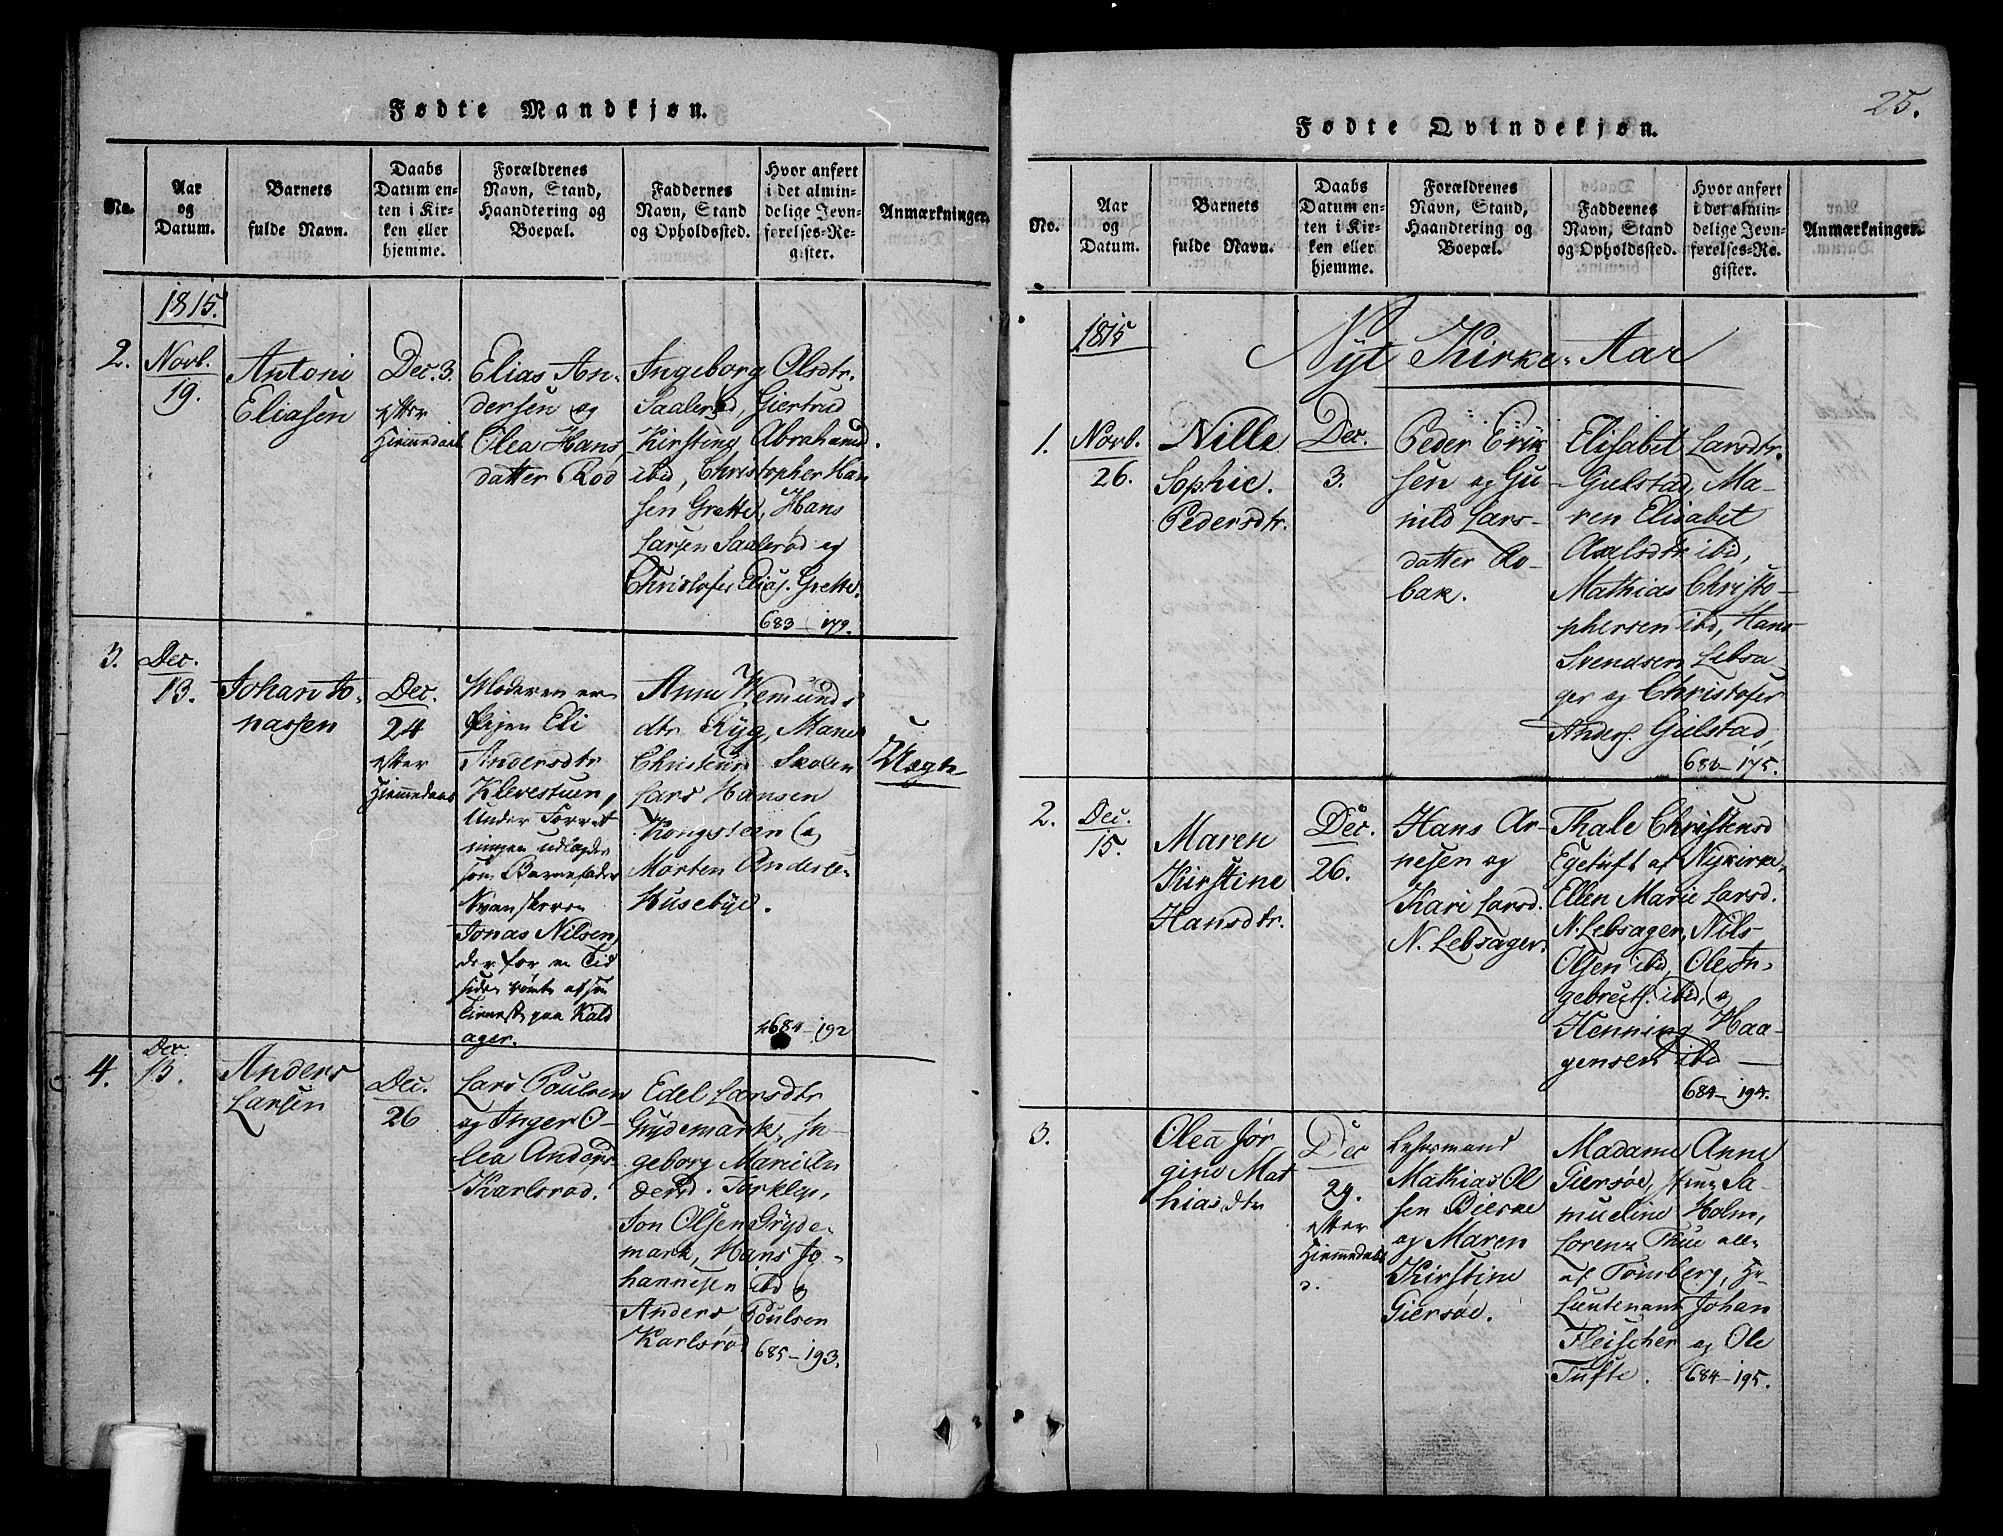 Fødte Mandkjøn.
No.
Aar
og
Datum.
Barnets
fulde Navn.
Daabs
Datum en-
ten i Kir-
ken eller
hjemme.
Forældrenes
Navn, Stand,
Haandtering og
Boepæl.
Faddernes
Navn, Stand
og Opholdssted.
Hvor anført
i det almin-
delige Jevn-
førelses-Re-
gister.
Anmærkninger.
1815.
2.
Novb.
19.
Antoni
Eliasen
Dec. 3.
efter
Hiemmedaab
Elias An-
dersen og
Olea Hans
datter Rød
Ingeborg Olsdtr.
Saalerød, Giertrud
Kirsting Abrahamsd.
ibid, Christopher Han
sen Grette, Hans
Larsen Saalerød og
Christofer Elias. Grette.
683 - 179.
3.
Dec.
13.
Johan Jo-
nassen
Dec.
24
efter
Hiemmedaab
Moderen er
Pigen Eli
Andersdtr
Klevestuen,
under Forret
ningen udlagde
som Barnefader
Svenskeren
Jonas Nilsen,
der for en Tid
siden rømte af sin
Tieneste paa Kald
ager.
Anne Wemunds
dtr Ryg, Maria
Christine Skolen
Lars Hansen
Kongsteen og
Morten Anderse-
Husebye.
684 - 192
Uægte
4.
Dec.
13.
Anders
Larsen
Dec.
26
Lars Poulsen
og Inger O-
lea Anders
Karlsrød.
Edel Larsdtr
Grydemark, In-
geborg Marie An
dersd. Torklep,
Jon Olsen Gryde-
mark, Hans Jo-
hannesen ibd og
Anders Poulsen
Karlsrød
685 - 193.
25.
Fødte Qvindekjøn.
No.
Aar
og
Datum.
Barnets
fulde Navn.
Daabs
Datum en-
ten i Kir-
ken eller
hjemme.
Forældrenes
Navn, Stand,
Haandtering og
Boepæl.
Faddernes
Navn, Stand
og Opholdssted.
Hvor anført
i det almin-
delige Jevn-
førelses-Re-
gister.
Anmærkninger.
1815
Nyt Kirke-Aar
1.
Novb.
26.
Nille
Sophie.
Pedersdtr.
Dec.
3.
Peder Erik
sen og Gu-
nild Lars-
datter Ro-
bak.
Elisabet Larsdtr.
Gulstad, Ma-
ren Elisabet
Axelsdtr ibid,
Mathias Christo-
phersen ibd, Hans
Svendsen Lebsa-
ger og Christofer
Anders. Gulstad,
683 - 175.
2.
Dec.
15.
Maren
Kirstine
Hansdtr.
Dec.
26.
Hans Ar-
nesen og
Kari Larsd.
N. Lebsager.
Thale Christensd
Egetuft af Nykirke,
Ellen Marie Larsd.
N. Lebsager, Nils
Olsen ibid, Ole In-
gebregts. ibid, og
Henning Haa-
gensen ibd
684 - 194.
3.
Olea Jør-
gine Mat
hiasdtr
Dec
29.
efter
Hiemmedaab
Lehnsmand
Mathias Ol
sen Bierke
og Maren
Kirstine
Giersøe.
Madame Anne
Giersøe, Jfru Sa-
mueline Holm,
Lorenz Thue alle
af Tønsberg, Hr
Lieutenant Johan
Fleischer og Ole
Tufte.
684 - 195.